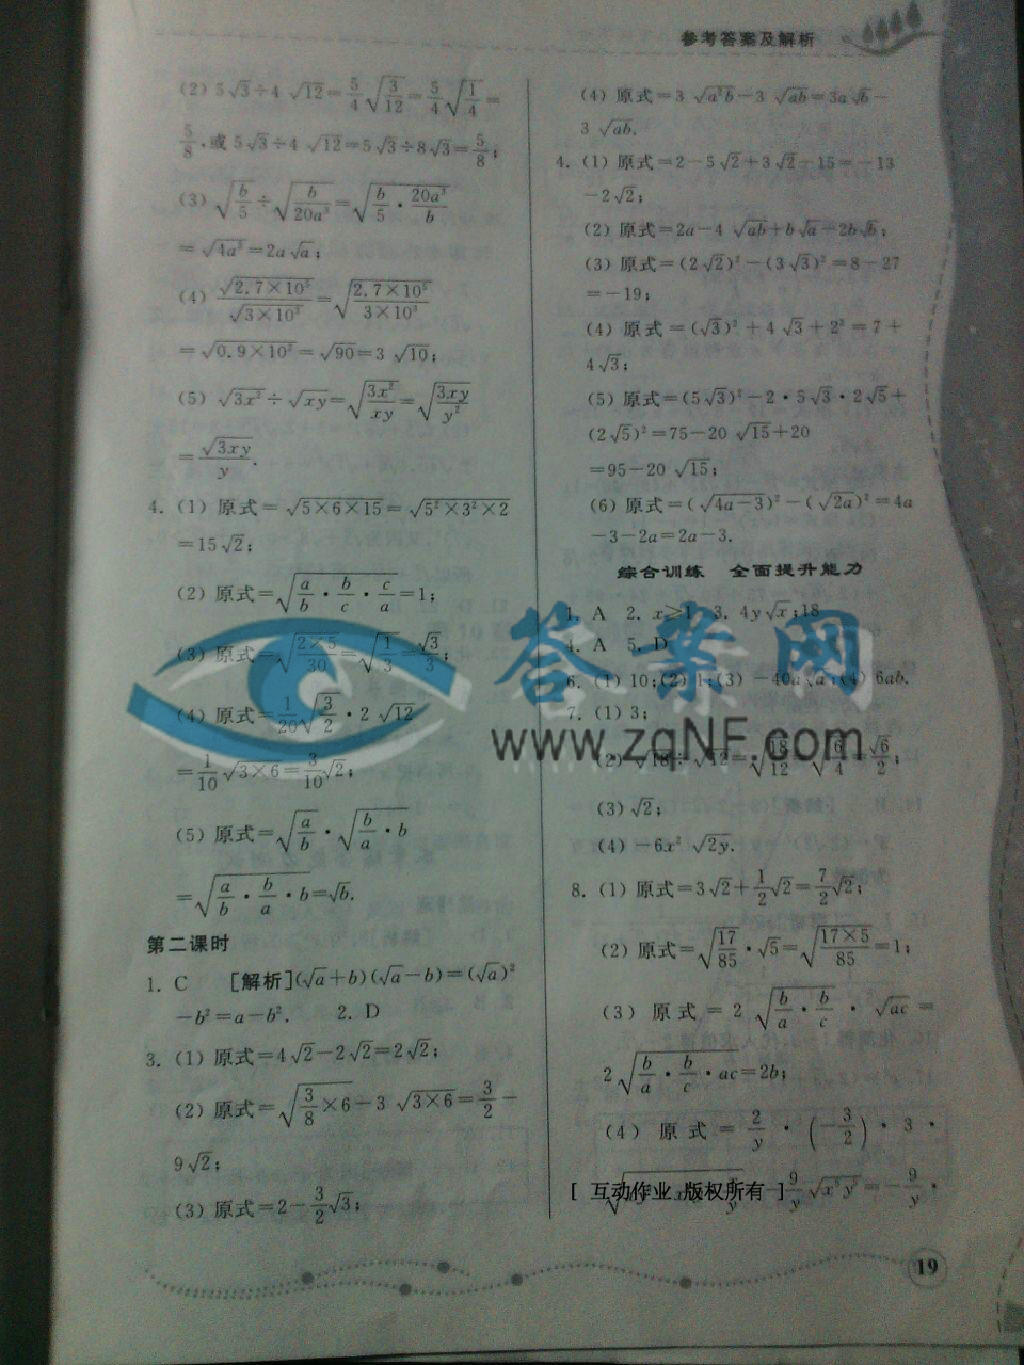 参考答案及解析
(2) 5√3÷4√12=5/4√(3/12)=5/4√(1/4)=
5/8,或5√3÷4√12=5√3÷8√3=5/8;
(3) √(b/5)÷√(b/20a³)=√(b/5·20a³/b)
=√4a³=2a√a;
(4) √(2.7×10⁵)/√(3×10³)=√((2.7×10⁵)/(3×10³))
=√(0.9×10²)=√90=3√10;
(5) √3x²÷√xy=√(3x²/xy)=√(3xy/y²)
=√3xy/y.
4. (1) 原式=√(5×6×15)=√(5²×3²×2)
=15√2;
(2) 原式=√(a/b·b/c·c/a)=1;
(3) 原式=√((2×5)/30)=√(1/3)=√3/3;
(4) 原式=1/20√(3/2)·2√12
=1/10√(3×6)=3/10√2;
(5) 原式=√(a/b)·√(b/a·b)
=√(a/b·b/a·b)=√b.
第二课时
1. C [解析](√a+b)(√a-b)=(√a)²
-b²=a-b². 2. D
3. (1) 原式=4√2-2√2=2√2;
(2) 原式=√(3/8×6)-3√(3×6)=3/2-
9√2;
(3) 原式=2-3/2√3;
(4) 原式=3√a²b-3√ab=3a√b-
3√ab.
4. (1) 原式=2-5√2+3√2-15=-13
-2√2;
(2) 原式=2a-4√ab+b√a-2b√b;
(3) 原式=(2√2)²-(3√3)²=8-27
=-19;
(4) 原式=(√3)²+4√3+2²=7+
4√3;
(5) 原式=(5√3)²-2·5√3·2√5+
(2√5)²=75-20√15+20
=95-20√15;
(6) 原式=(√(4a-3))²-(√2a)²=4a
-3-2a=2a-3.
综合训练 全面提升能力
1. A 2. x≥1 3. 4y√x;18
4. A 5. D
6. (1) 10;(2) 1;(3) -40a√a;(4) 6ab.
7. (1) 3;
(2) √18÷√12=√(18/12)=√(6/4)=√6/2;
(3) √2;
(4) -6x²√2y.
8. (1) 原式=3√2+1/2√2=7/2√2;
(2) 原式=√(17/85)·√5=√((17×5)/85)=1;
(3) 原式=2√(b/a·b/c)·√ac=
2√(b/a·b/c·ac)=2b;
(4) 原式=2/y·(-3/2)·3·
9/y√x⁵y⁵=-9/y·
[ 互动作业 版权所有 ]
19
答案网
www.zqNF.com